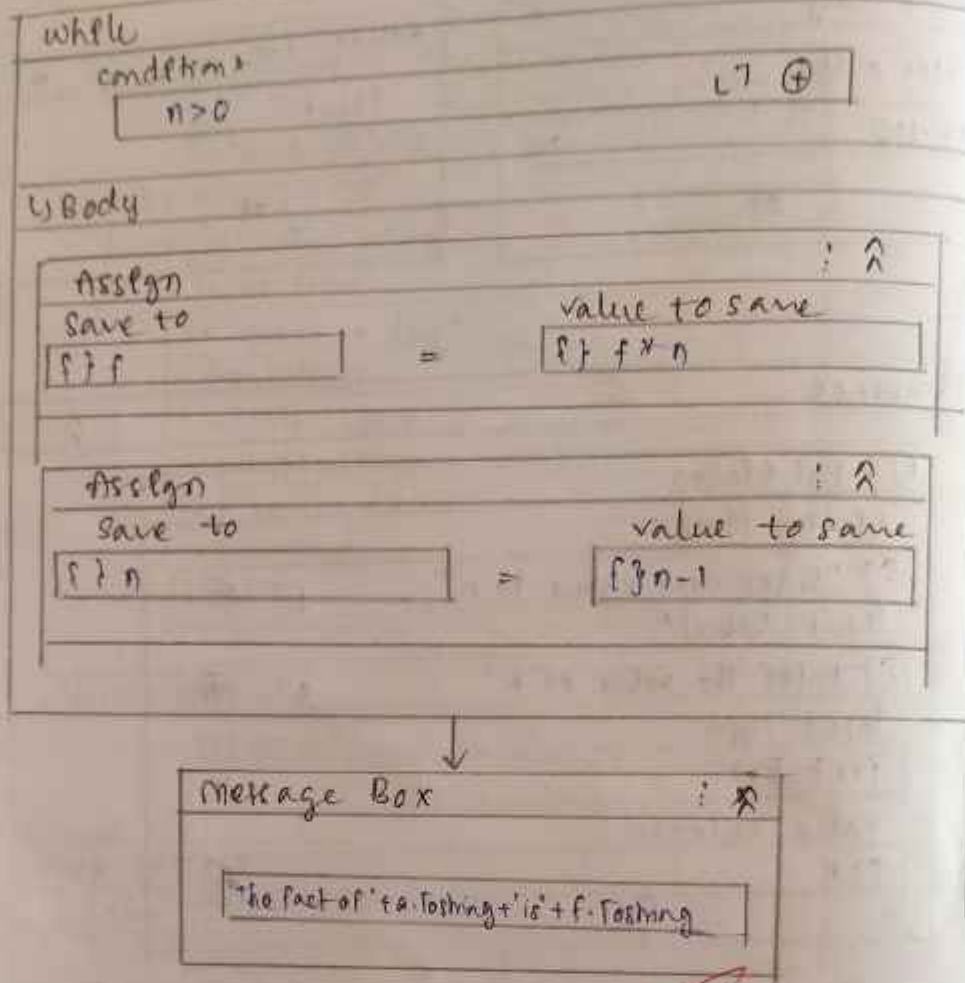 while
conditions
n>0
↳ Body
Assign
save to value to save
{ } f = { } f * n
Assign
save to value to save
{ } n = { } n-1
Message Box
"The fact of "+a.Tostring+"is"+f.Tostring